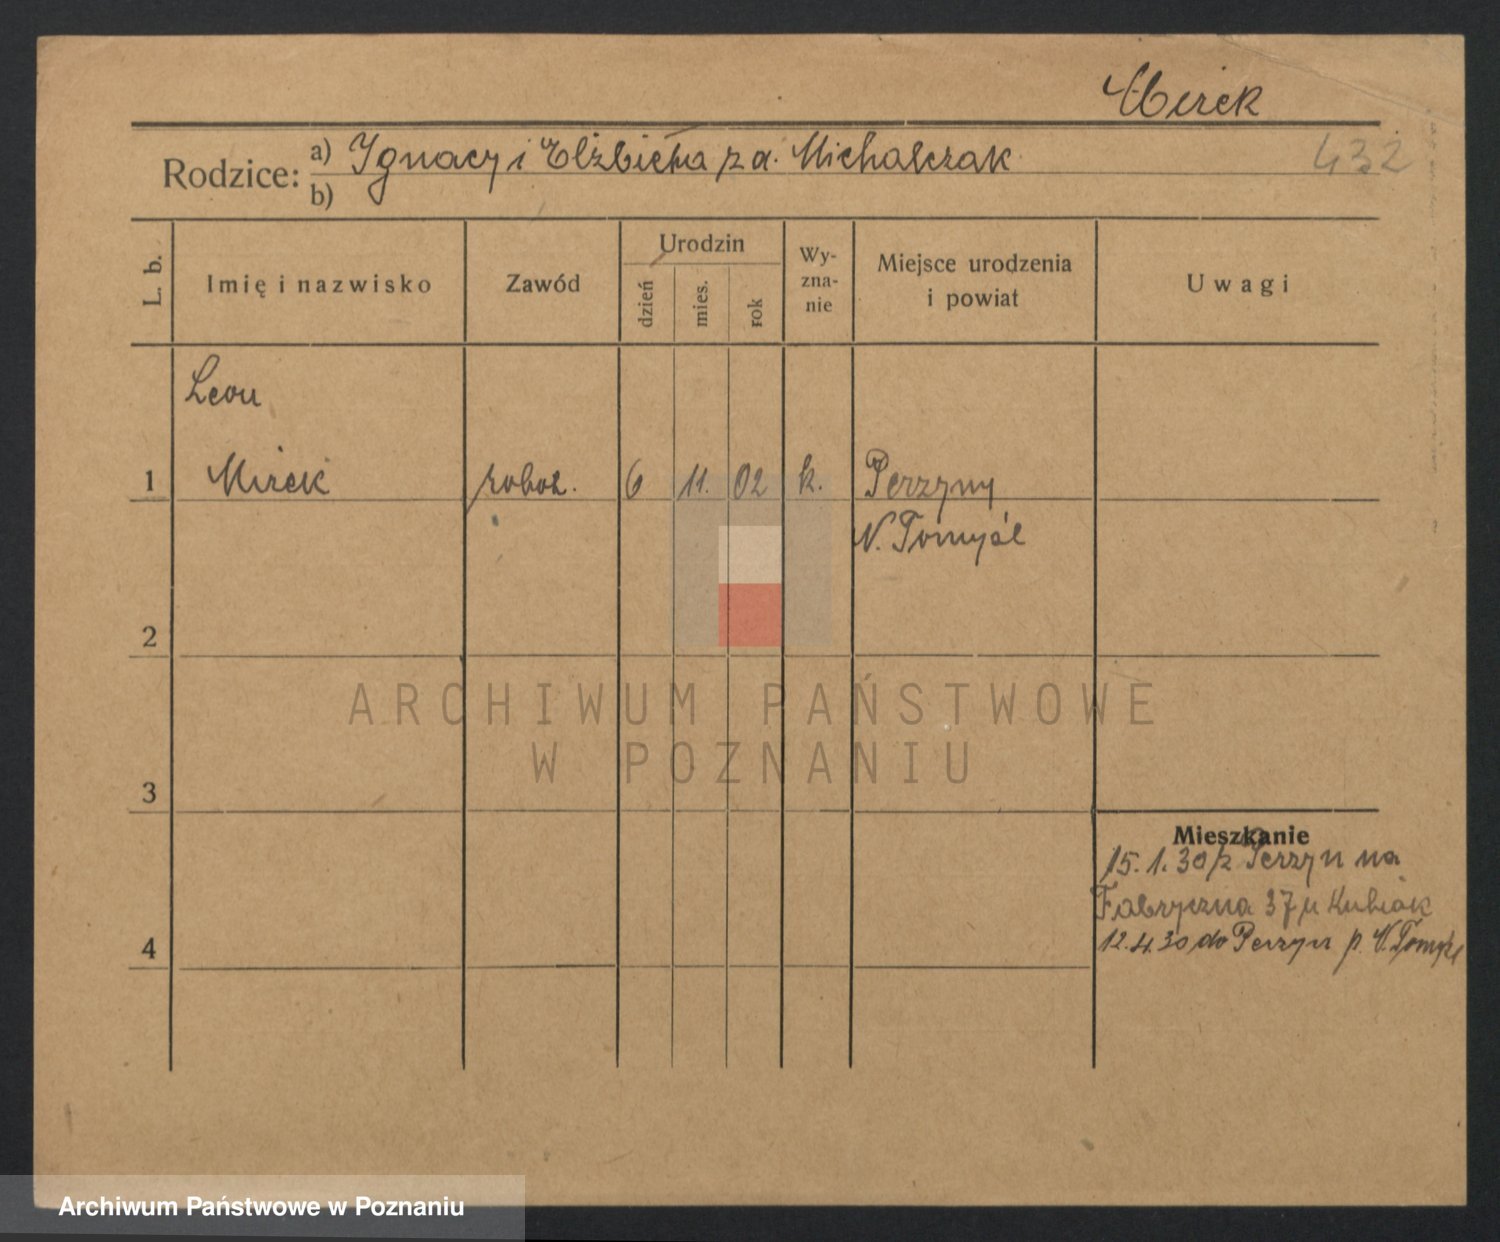 Mirek
Rodzice: a) Ignacy i Elżbieta z d. Michalczak
432
b)
L. b.
Imię i nazwisko
Zawód
Urodzin
dzień
mies.
rok
Wy-
zna-
nie
Miejsce urodzenia
i powiat
Uwagi
Leon
1 Mirek robot. 6 11. 02 k. Perzyny
N. Tomyśl
2
ARCHIWUM PAŃSTWOWE
W POZNANIU
3
Mieszkanie
15.1.30 z Perzyn na
Fabryczna 37 u Kubiak
4
12.4.30 do Perzyn p. N. Tomyśl
Archiwum Państwowe w Poznaniu